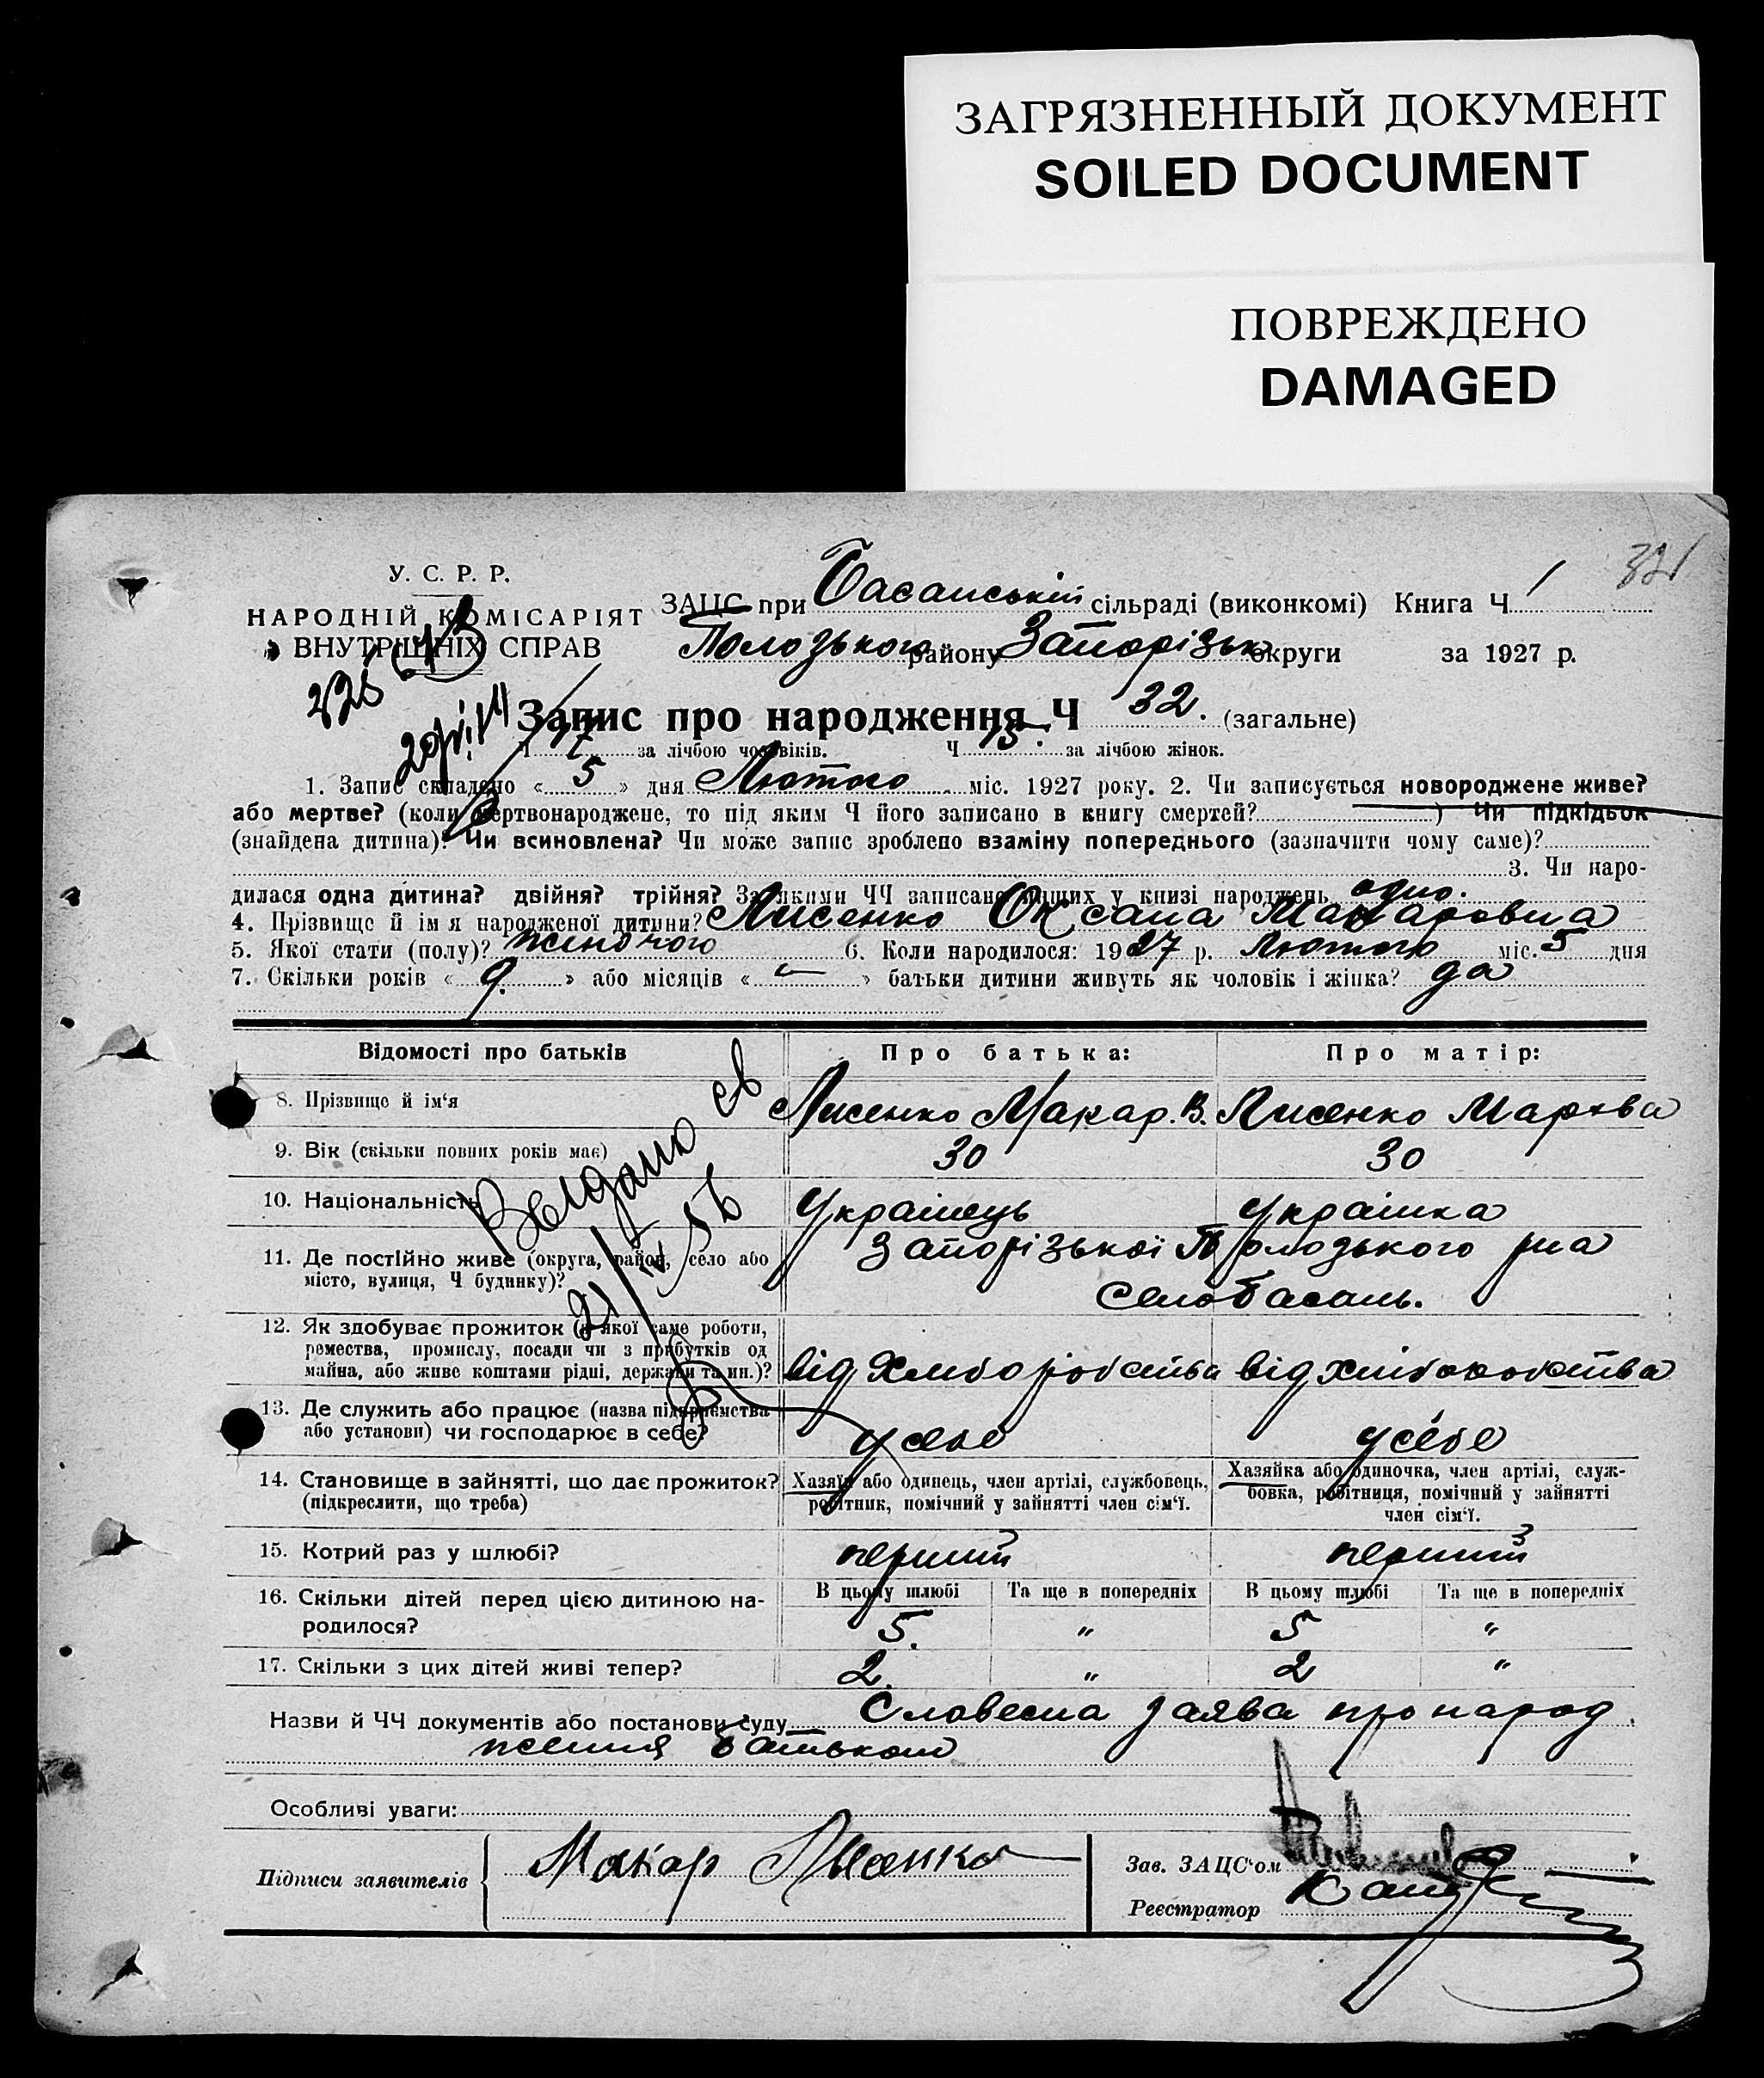 ЗАГРЯЗНЕННЫЙ ДОКУМЕНТ
SOILED DOCUMENT
ПОВРЕЖДЕНО
DAMAGED
У. С. Р. Р.
НАРОДНІЙ КОМІСАРІЯТ
ВНУТРІШНІХ СПРАВ
321
ЗАЦС при Басанській сільраді (виконкомі) Книга Ч. 1
Полозького району Запорізьк округи за 1927 р.
Запис про народження Ч 32. (загальне)
Ч 17 за лічбою чоловіків. Ч 15. за лічбою жінок.
1. Запис складено « 5 » дня Лютого міс. 1927 року. 2. Чи записується новороджене живе?
або мертве? (коли мертвонароджене, то під яким Ч його записано в книгу смертей? ) Чи підкідьок
(знайдена дитина)? Чи всиновлена? Чи може запис зроблено взаміну попереднього (зазначити чому саме)?
3. Чи наро-
дилася одна дитина? двійня? трійня? За якими ЧЧ записано інших у книзі народжень одно.
4. Прізвище й ім я народженої дитини? Лисенко Оксана Макаровна
5. Якої стати (полу)? жіночого 6. Коли народилося: 1927 р. Лютого міс. 5 дня
7. Скільки років « 9. » або місяців « — » батьки дитини живуть як чоловік і жінка? да
Відомості про батьків Про батька: Про матір:
8. Прізвище й ім‘я Лисенко Макар. В. Лисенко Марфа
9. Вік (скільки повних років має) 30 30
10. Національність Українець Українка
11. Де постійно живе (округа, район, село або Запорізької Полозького р-на
місто, вулиця, Ч будинку)? село Басань.
12. Як здобуває прожиток (з якої саме роботи,
ремества, промислу, посади чи з прибутків од
майна, або живе коштами рідні, держави та ин.)? від хліборобства від хліборобства
13. Де служить або працює (назва підприємства
або установи) чи господарює в себе? у себе у себе
14. Становище в зайнятті, що дає прожиток? Хазяїн або одинець, член артілі, службовець, Хазяйка або одиночка, член артілі, служ-
(підкреслити, що треба) робітник, помічний у зайнятті член сім‘ї. бовка, робітниця, помічний у зайнятті
член сім‘ї.
15. Котрий раз у шлюбі? перший перший
16. Скільки дітей перед цією дитиною на- В цьому шлюбі Та ще в попередніх В цьому шлюбі Та ще в попередніх
родилося? 5. " 5 "
17. Скільки з цих дітей живі тепер? 2. " 2 "
Назви й ЧЧ документів або постанови суду Словесна заява про народ
ження батьком
Особливі уваги:
Підписи заявителів Макар Лысенко Зав. ЗАЦС‘ом
Реєстратор
Выдано св
21/IV 56